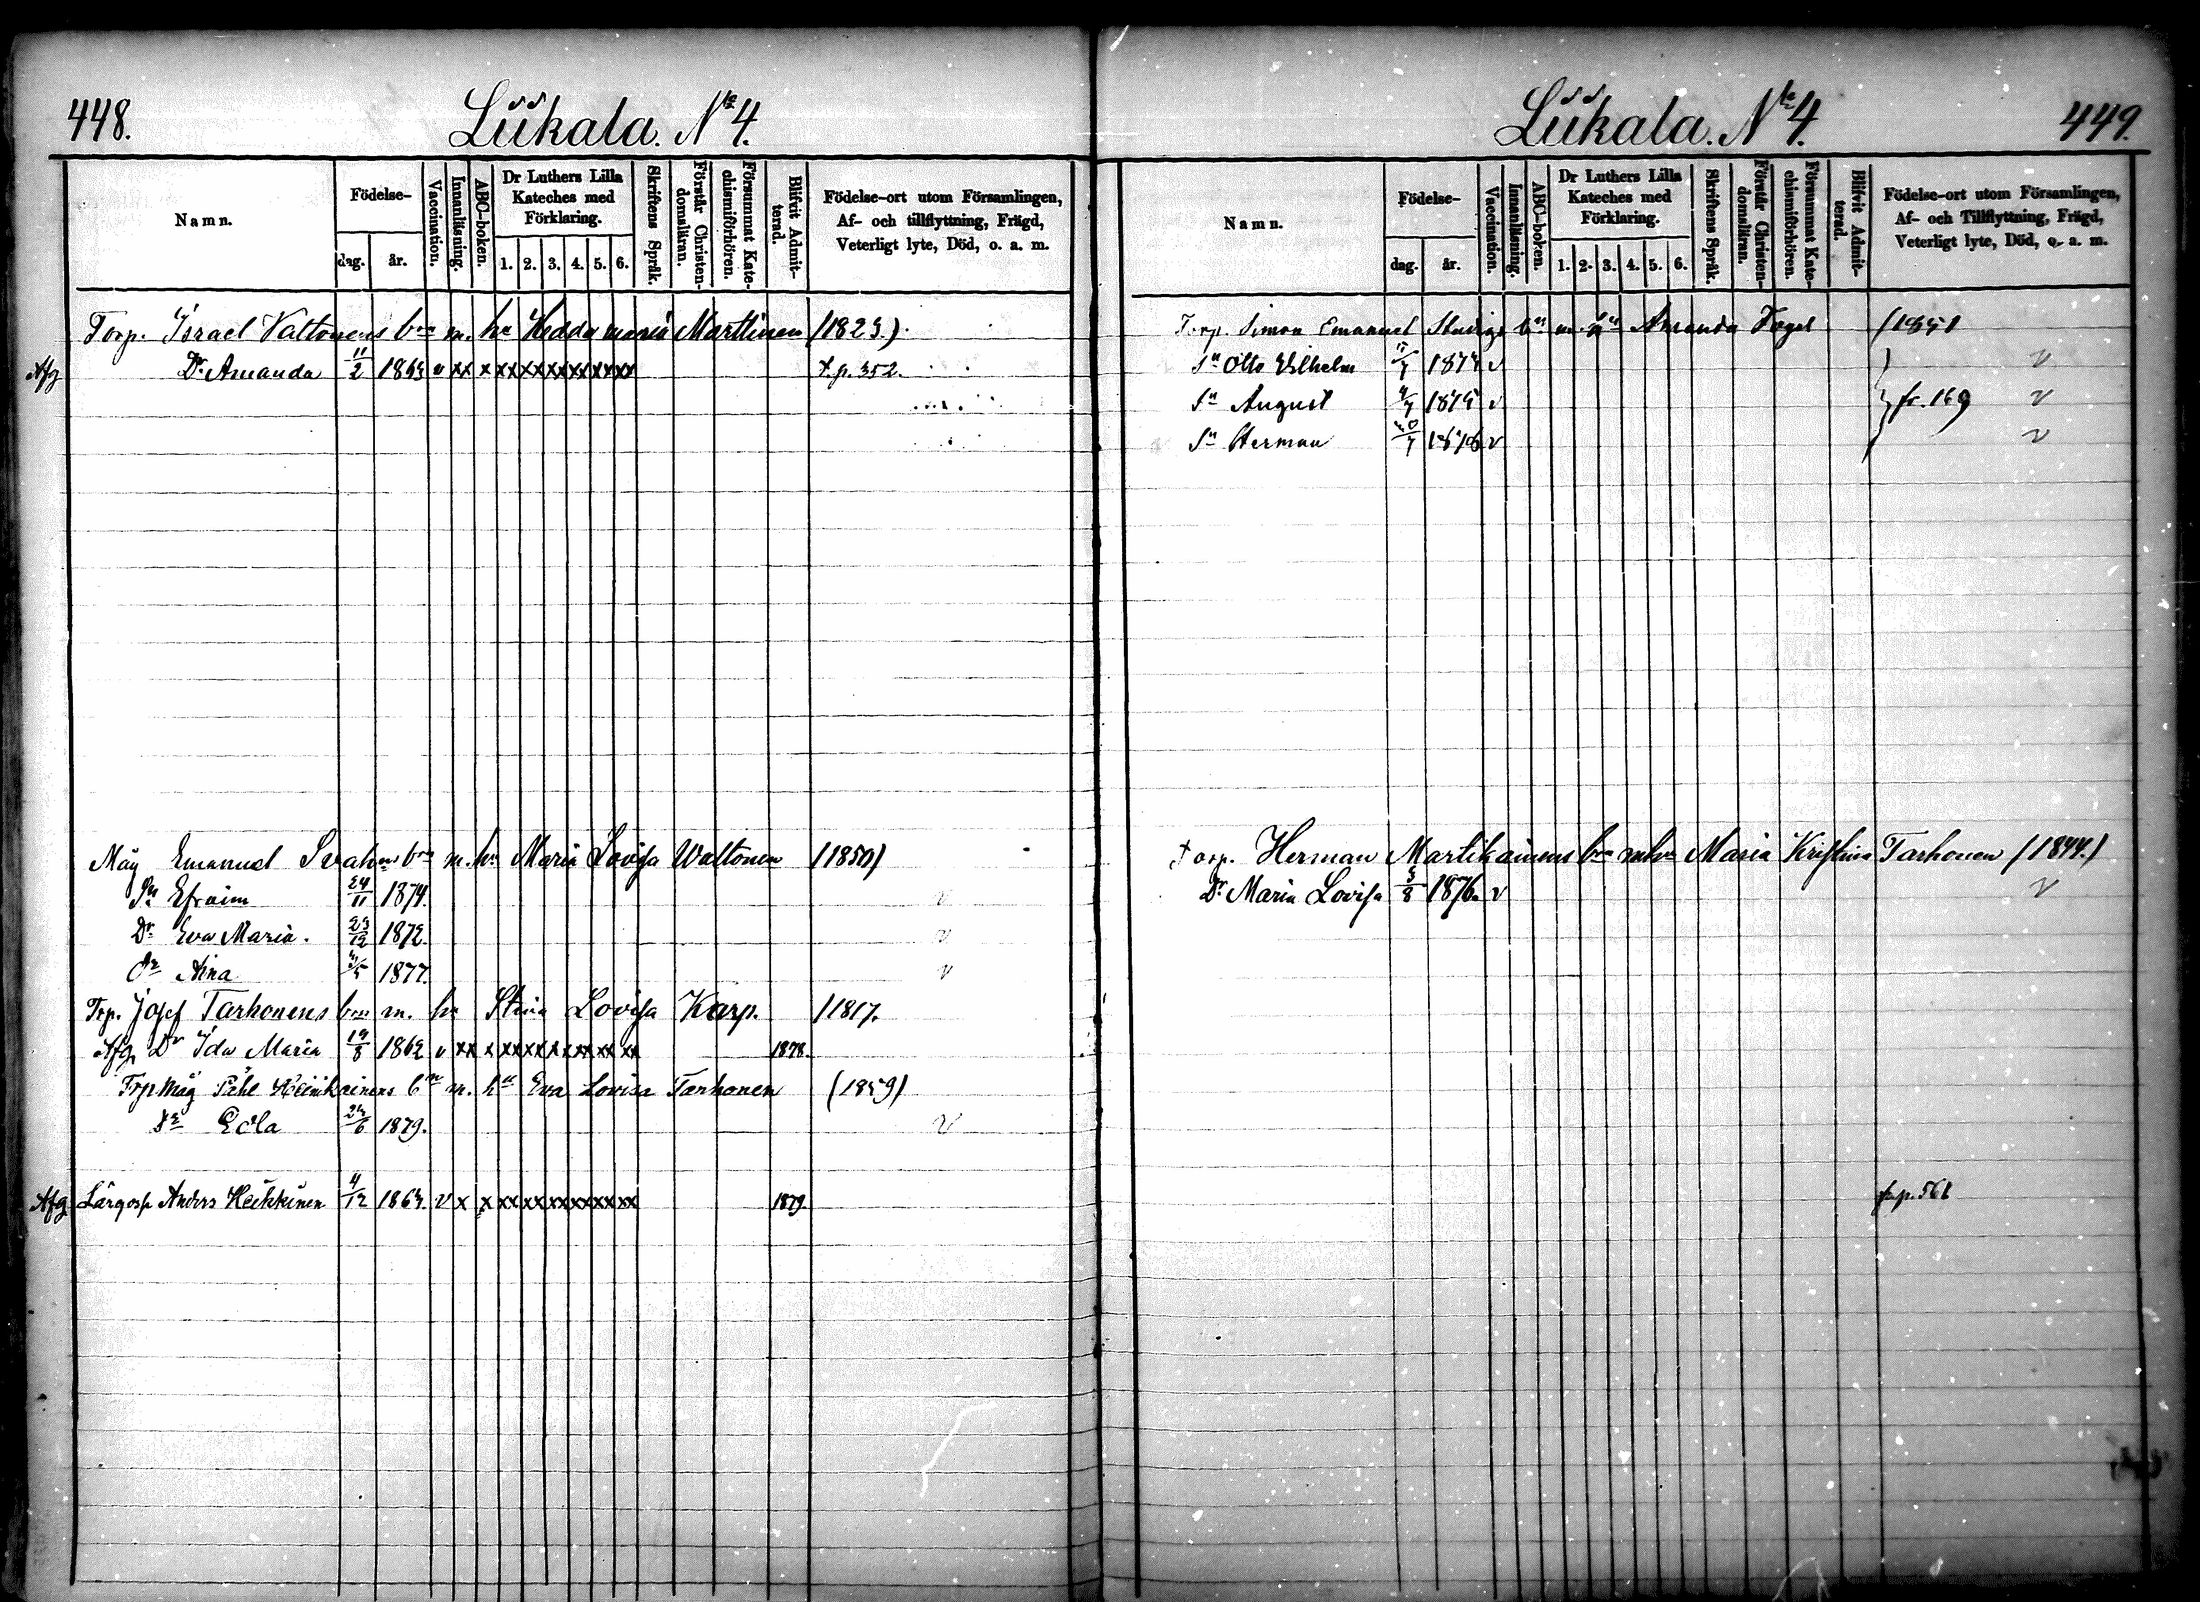 448.
Liikala. No 4.
Namn.
Födelse-
dag.
år.
Vaccination.
Innanläsning.
ABC-boken.
Dr Luthers Lilla Kateches med Förklaring.
1. 2. 3. 4. 5. 6.
Skriftens Språk.
Förstår Christen-domsläran.
Försummat Kate-chismiförhören.
Blifvit Admit-terad.
Födelse-ort utom Församlingen,
Af- och tillflyttning, Frägd,
Veterligt lyte, Död, o. a. m.
Torp. Israel Valtonens bn m. hu Hedda Maria Marttinen (1823).
Afg Dr Amanda 11/2 1863 v xx x xx xx xx xx xx xx t.p. 352.
Måg Emanuel bn m. hu Maria Lovisa Waltonen (1850)
Sn Efraim 24/11 1874. v
Dr Eva Maria. 23/12 1872. v
Dr Aina 1877. v
Trp. Josef Tarhonens bn m. hu Stina Lovisa Karp. (1817.
Afg. Dr Ida Maria 19/8 1862 v xx x xx xx xx xx xx xx 1878.
Trp måg Heinikainens bn m. hu Eva Lovisa Tarhonen (1859)
Dr Edla 23/6 1879. v
Afg Lärgosse Anders Heikkinen 4/12 1863. v x x xx xx xx xx xx xx 1879.
449.
Liikala. No 4.
Namn.
Födelse-
dag.
år.
Vaccination.
Innanläsning.
ABC-boken.
Dr Luthers Lilla Kateches med Förklaring.
1. 2. 3. 4. 5. 6.
Skriftens Språk.
Förstår Christen-domsläran.
Försummat Kate-chismiförhören.
Blifvit Admit-terad.
Födelse-ort utom Församlingen,
Af- och Tillflyttning, Frägd,
Veterligt lyte, Död, o. a. m.
Torp. Simon Emanuel bn m. hu Amanda Fogel (1851
Sn Otto Vilhelm v v
Sn August 1875 v fr. 169 v
Sn Herman 1876 v v
Torp. Herman Martikainens bn m hu Maria Kristina Tarhonen (1844.)
Dr Maria Lovisa 5/8 1876. v v
fr p. 561